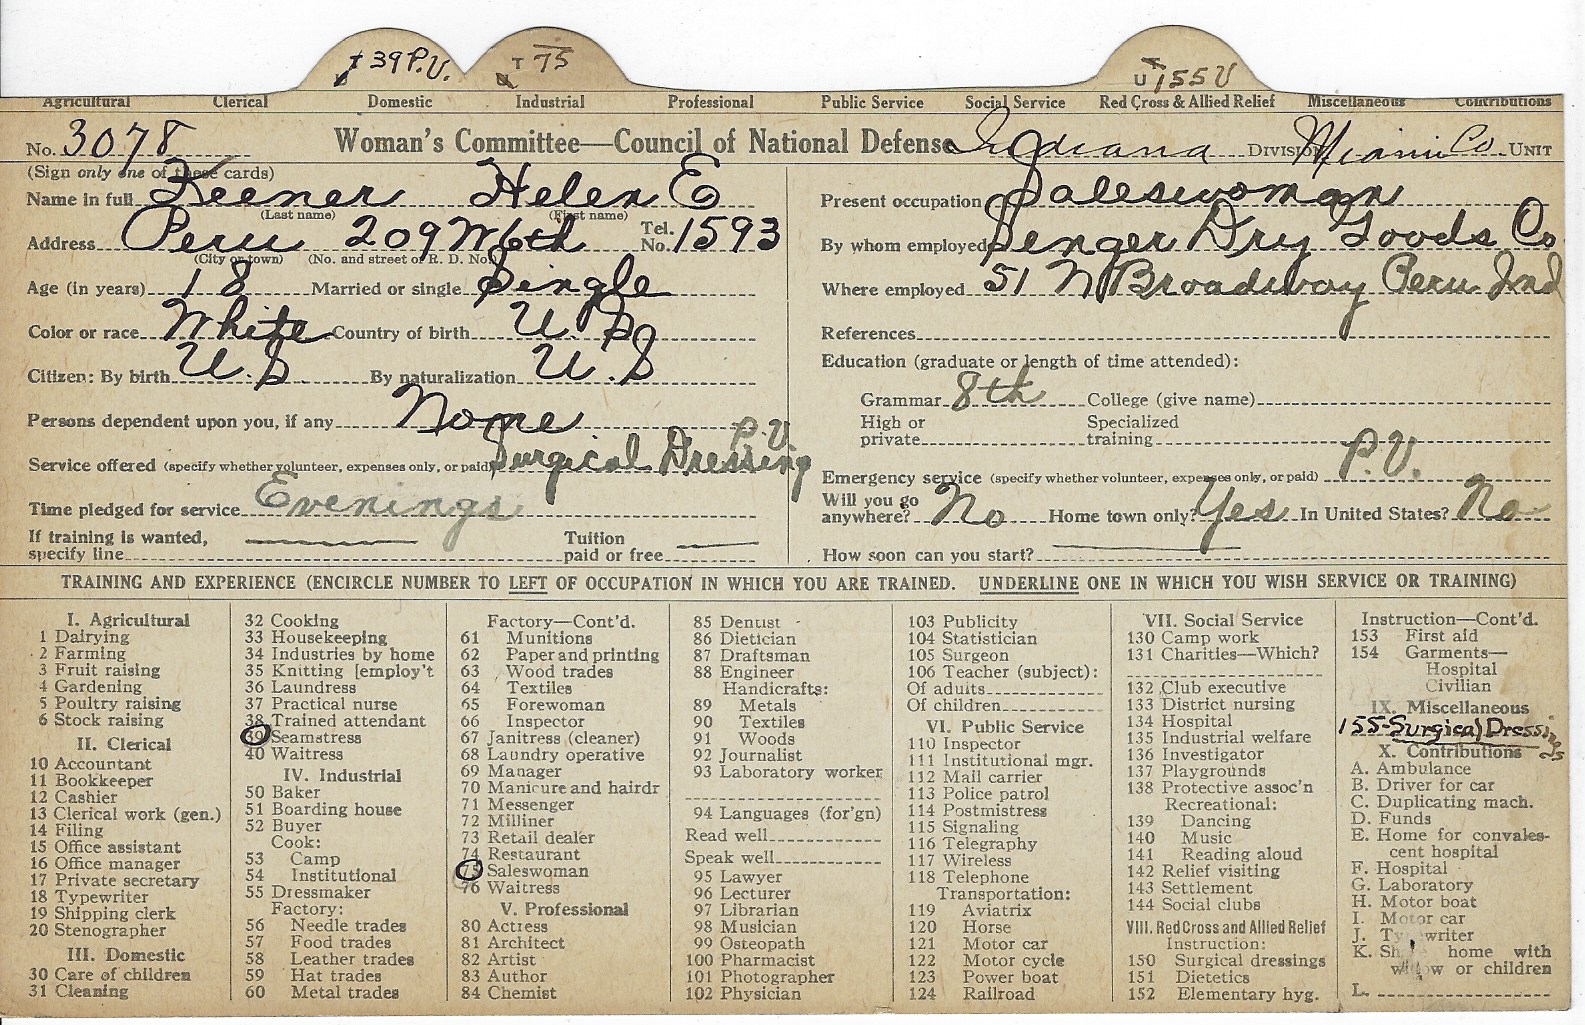 T 39 P.V. T 75 U 155 V
Agricultural Clerical Domestic Industrial Professional Public Service Social Service Red Cross & Allied Relief Miscellaneous Contributions
No. 3078 Woman's Committee—Council of National Defense Indiana DIVISION Miami Co. UNIT
(Sign only one of these cards)
Name in full Keener Helen E
(Last name) (First name)
Address Peru 209 W 6th Tel. No. 1593
(City or town) (No. and street or R. D. No.)
Age (in years) 18 Married or single Single
Color or race White Country of birth U.S.
Citizen: By birth U.S. By naturalization U.S
Persons dependent upon you, if any None
P.V.
Service offered (specify whether volunteer, expenses only, or paid) Surgical Dressing
Time pledged for service Evenings
If training is wanted, specify line Tuition paid or free
Present occupation Saleswoman
By whom employed Senger Dry Goods Co
Where employed 51 N Broadway Peru Ind
References
Education (graduate or length of time attended):
Grammar 8th College (give name)
High or private Specialized training
Emergency service (specify whether volunteer, expenses only, or paid) P.V.
Will you go anywhere? No Home town only? Yes In United States? No
How soon can you start?
TRAINING AND EXPERIENCE (ENCIRCLE NUMBER TO LEFT OF OCCUPATION IN WHICH YOU ARE TRAINED. UNDERLINE ONE IN WHICH YOU WISH SERVICE OR TRAINING)
I. Agricultural
1 Dairying
2 Farming
3 Fruit raising
4 Gardening
5 Poultry raising
6 Stock raising
II. Clerical
10 Accountant
11 Bookkeeper
12 Cashier
13 Clerical work (gen.)
14 Filing
15 Office assistant
16 Office manager
17 Private secretary
18 Typewriter
19 Shipping clerk
20 Stenographer
III. Domestic
30 Care of children
31 Cleaning
32 Cooking
33 Housekeeping
34 Industries by home
35 Knitting [employ't
36 Laundress
37 Practical nurse
38 Trained attendant
39 Seamstress
40 Waitress
IV. Industrial
50 Baker
51 Boarding house
52 Buyer
Cook:
53 Camp
54 Institutional
55 Dressmaker
Factory:
56 Needle trades
57 Food trades
58 Leather trades
59 Hat trades
60 Metal trades
Factory—Cont'd.
61 Munitions
62 Paper and printing
63 Wood trades
64 Textiles
65 Forewoman
66 Inspector
67 Janitress (cleaner)
68 Laundry operative
69 Manager
70 Manicure and hairdr
71 Messenger
72 Milliner
73 Retail dealer
74 Restaurant
75 Saleswoman
76 Waitress
V. Professional
80 Actress
81 Architect
82 Artist
83 Author
84 Chemist
85 Dentist
86 Dietician
87 Draftsman
88 Engineer
Handicrafts:
89 Metals
90 Textiles
91 Woods
92 Journalist
93 Laboratory worker
94 Languages (for'gn)
Read well
Speak well
95 Lawyer
96 Lecturer
97 Librarian
98 Musician
99 Osteopath
100 Pharmacist
101 Photographer
102 Physician
103 Publicity
104 Statistician
105 Surgeon
106 Teacher (subject):
Of adults
Of children
VI. Public Service
110 Inspector
111 Institutional mgr.
112 Mail carrier
113 Police patrol
114 Postmistress
115 Signaling
116 Telegraphy
117 Wireless
118 Telephone
Transportation:
119 Aviatrix
120 Horse
121 Motor car
122 Motor cycle
123 Power boat
124 Railroad
VII. Social Service
130 Camp work
131 Charities—Which?
132 Club executive
133 District nursing
134 Hospital
135 Industrial welfare
136 Investigator
137 Playgrounds
138 Protective assoc'n
Recreational:
139 Dancing
140 Music
141 Reading aloud
142 Relief visiting
143 Settlement
144 Social clubs
VIII. Red Cross and Allied Relief
Instruction:
150 Surgical dressings
151 Dietetics
152 Elementary hyg.
Instruction—Cont'd.
153 First aid
154 Garments—
Hospital
Civilian
IX. Miscellaneous
155-Surgical Dressings
X. Contributions
A. Ambulance
B. Driver for car
C. Duplicating mach.
D. Funds
E. Home for convales-
cent hospital
F. Hospital
G. Laboratory
H. Motor boat
I. Motor car
J. Typewriter
K. Share home with
widow or children
L.